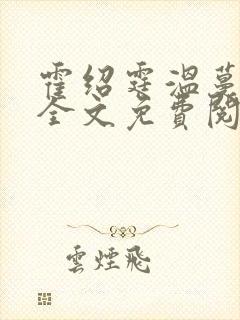 霍紹霆温蔓
全文免費閱
雲煙飛